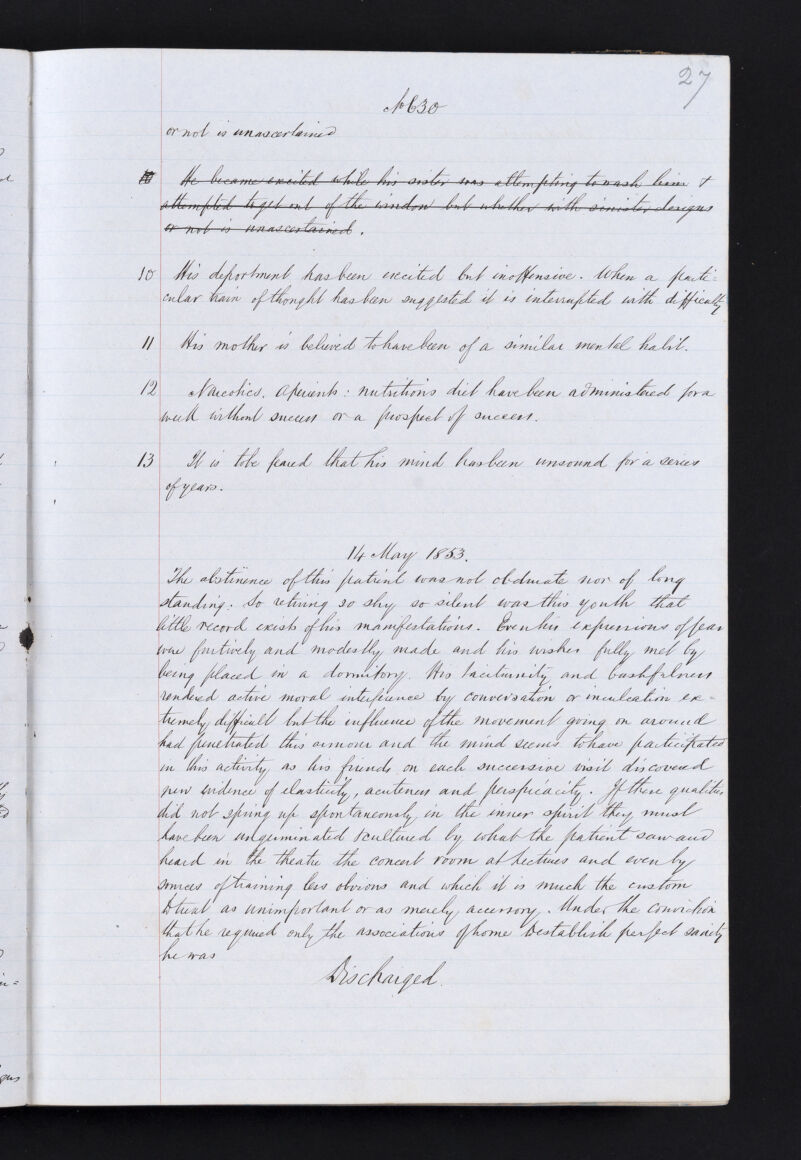 27
No 630
or not is unascertained
He became excited while his sister was attempting to wash him +
attempted to get out of the window but whether with sinister designs
or not is unascertained.
10 His deportment has been excited but inoffensive. When a parti=
cular train of thought has been suggested it is interrupted with difficulty
11 His mother is believed to have been of a similar mental habit.
12 Narcotics. Aperients: nutritious diet have been administered for a
week without success or a prospect of success.
13 It is to be feared that his mind has been unsound for a series
of years.
14 May 1853.
The abstinence of this patient was not obdurate nor of long
standing. So retiring so shy so silent was this youth that
little record exists of his manifestations. Even his expressions of fear
were furtively and modestly made and his wishes fully met by
being placed in a dormitory. His taciturnity and bashfulness
rendered active moral interference by conversation or inculcation ex=
tremely difficult but the influence of the movement going on around
had penetrated this armour and the mind seems to have participated
in this activity as his friends on each successive visit discovered
new evidence of elasticity, acuteness and perspicacity. If these qualities
did not spring up spontaneously in the inner spirit they must
have been & cultured by what the patient saw and
heard in the theatre the concert room at Lectures and even by
sources of training less obvious and which it is much the custom
to treat as unimportant or as merely accessory. Under the conviction
that he required only the associations of home to establish perfect sanity
he was
Discharged.